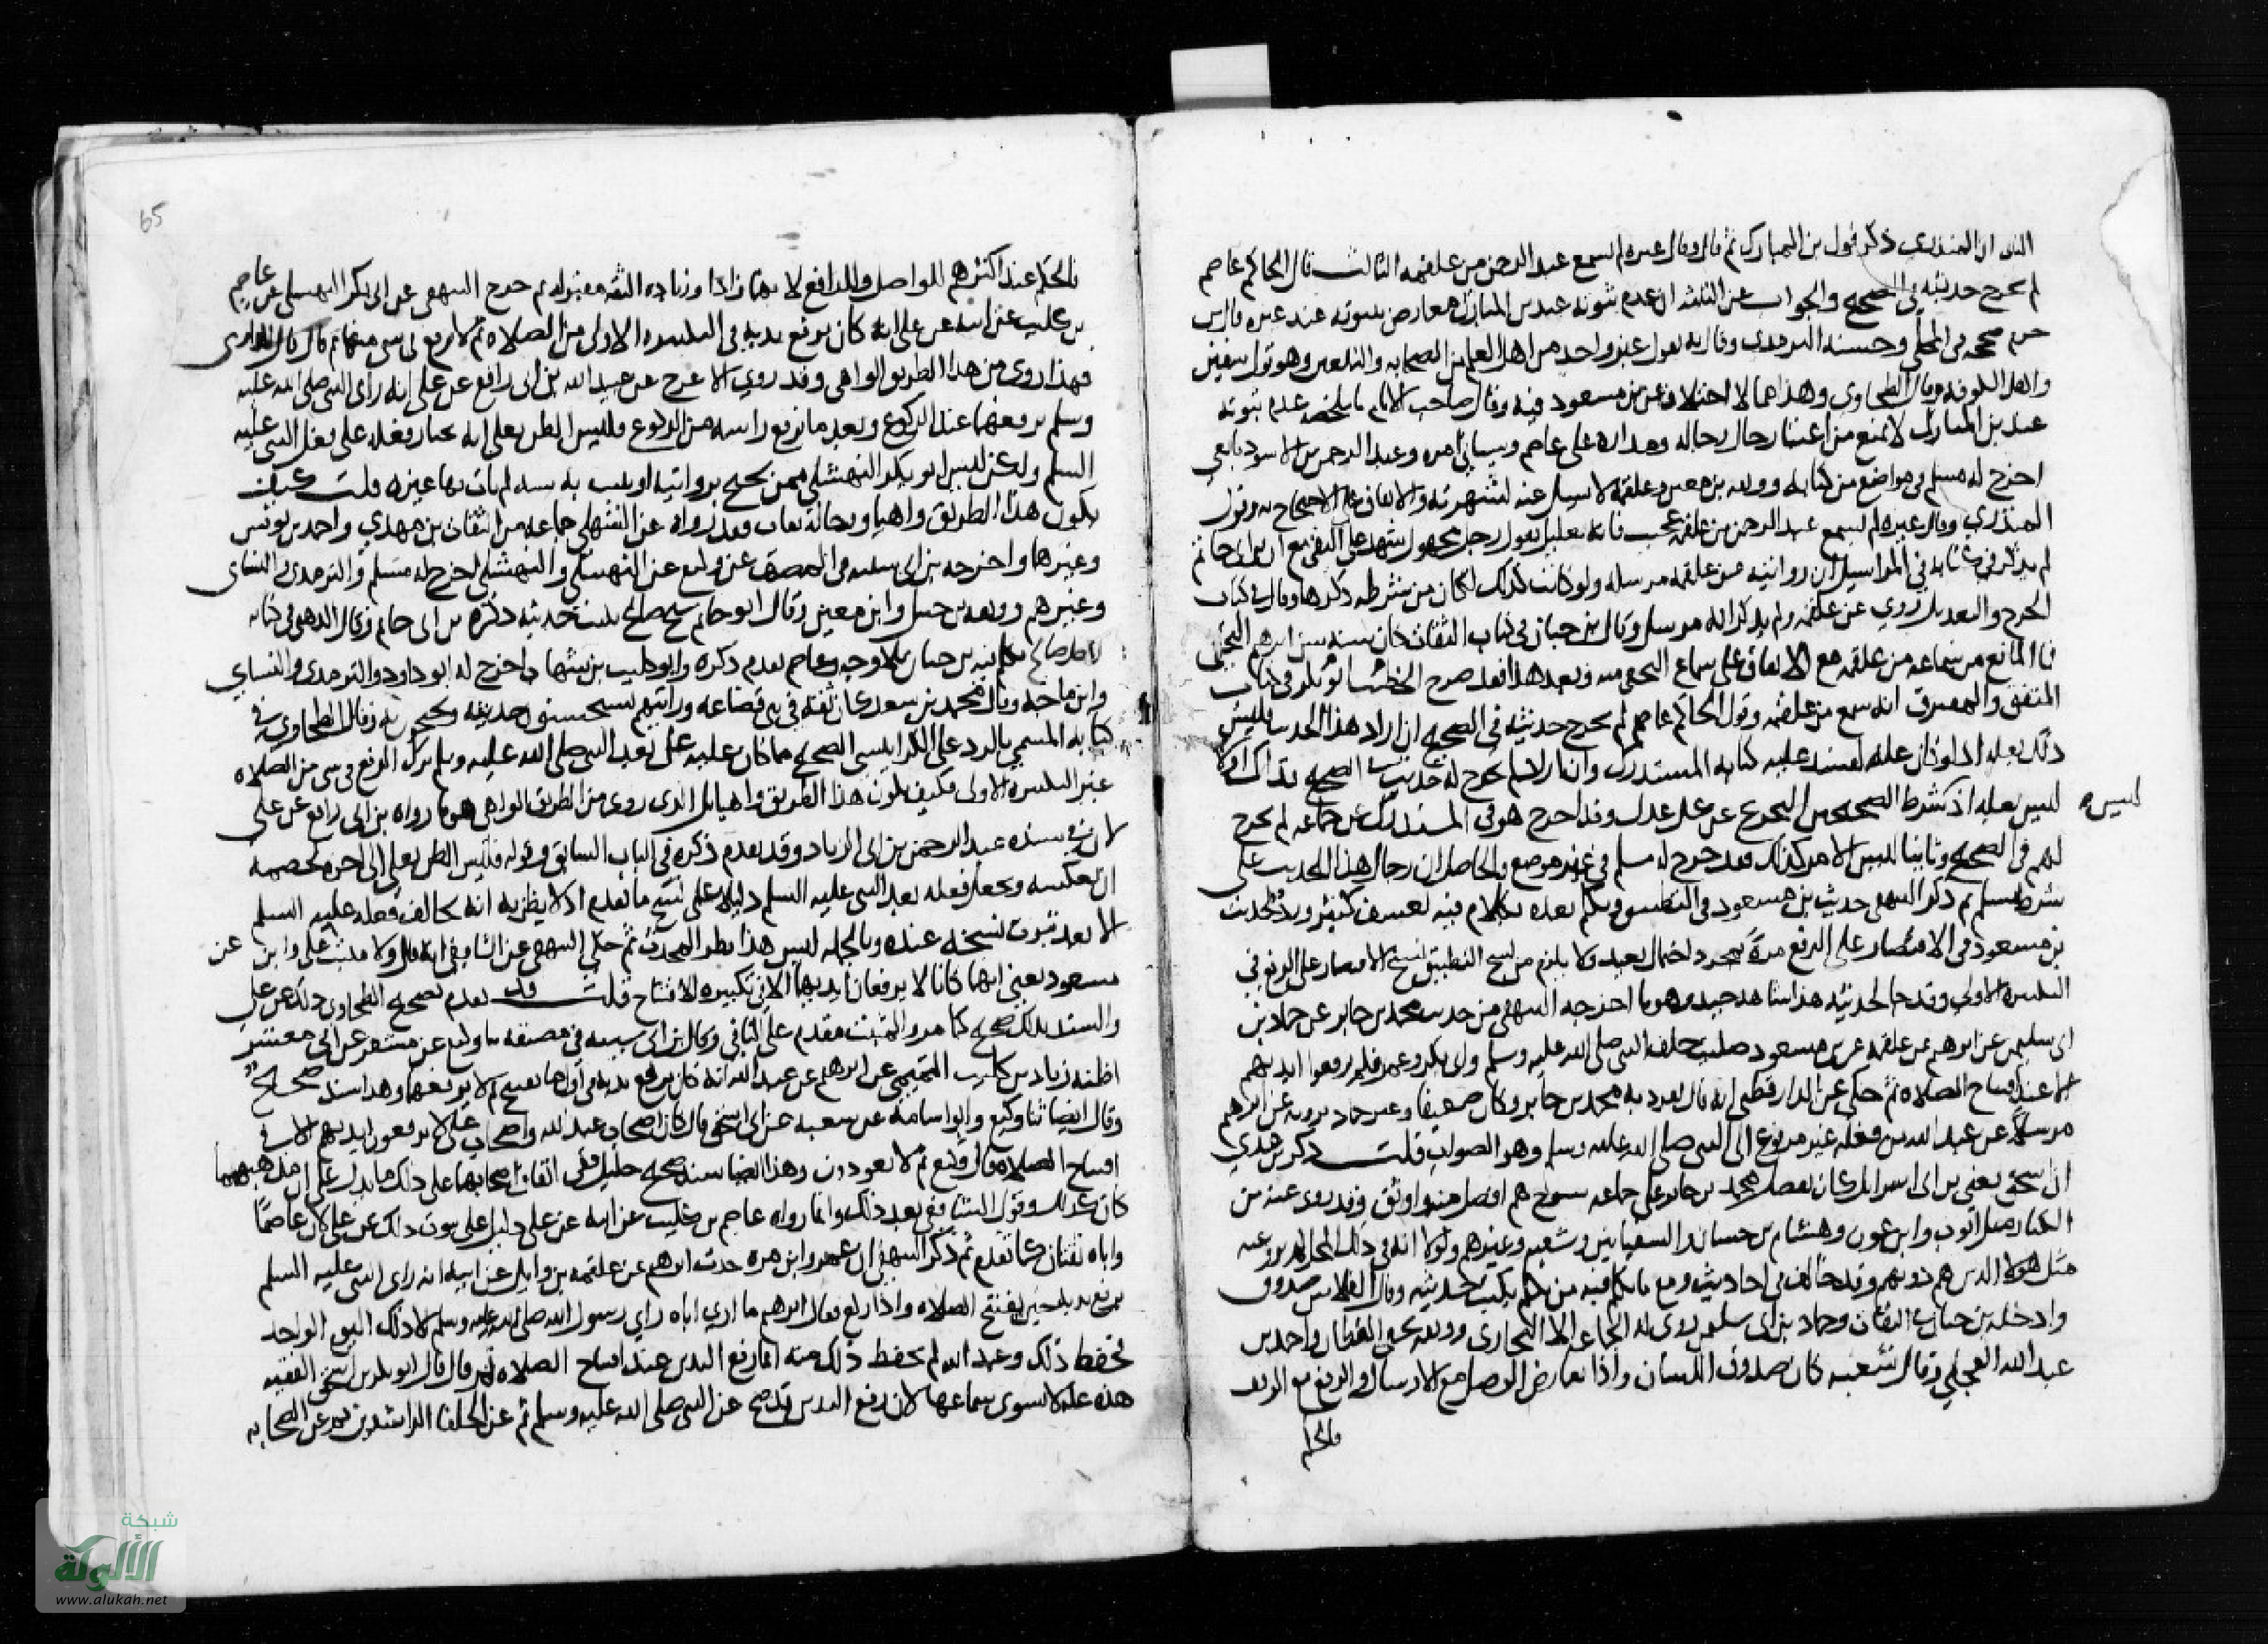 ان المنذري ذكر قول بن المبارك ثم قال وقال غيره لم يسمع عبد الرحمن من علقمه الثالث قال الحاكم عاصم
لم يخرج حديثه في الصحيح والجواب عن الثلثه ان عدم ثبوته عند بن المبارك معارض بثبوته عند غيره فان بن
حزم صححه في المحلي وحسنه الترمذي وقال به يقول غير واحد من اهل العلم من الصحابه والتابعين وهو قول سفين
واهل الكوفه وقال الطحاوي وهذا مما لا اختلاف عن بن مسعود فيه وقال صاحب الامام ما ملخصه عدم ثبوته
عند بن المبارك لا يمنع من اعتبار رجاله ومداره على عاصم وسياتي امره وعبد الرحمن بن الاسود تابعي
اخرج له مسلم في مواضع من كتابه ووثقه بن معين وعلقمة لا يسيل عنه لشهرته والاتفاق على الاحتجاج به وقول
المنذري وقال غيره لم يسمع عبد الرحمن من علقمه عجيب فانه تعليل بقول رجل مجهول شهد على النفي مع ان بن ابي حاتم
لم يذكر في كتابه في المراسيل ان روايته عن علقمه مرسله ولو كانت كذلك لكان من شرطه ذكرها وقال في كتاب
الجرح والتعديل روي عن علقمه ولم يذكر انه مرسل وقال بن حبان في كتاب الثقات كان سنه سن ابرهيم النخعي
فما المانع من سماعه من علقمه مع الاتفاق على سماع النخعي منه وبعد هذا فقد صرح الخطيب ابو بكر في كتاب
المتفق والمفترق انه سمع من علقمه وقول الحاكم عاصم لم يخرج حديثه في الصحيح ان اراد هذا الحديث فليس
ذلك بعله اذ لو كان عله لفسد عليه كتابه المستدرك وان اراد لم يخرج له حديث في الصحيح فذاك اولا
ليس بعله اذ شرط الصحيحين التخريج عن كل عدل وقد اخرج هو في المستدرك عن جماعه لم يخرج
ليس
لهم في الصحيح وثانيا ليس الامر كذلك فقد خرج له مسلم في غير موضع والحاصل ان رجال هذا الحديث على
شرط مسلم ثم ذكر البيهقي حديث بن مسعود في التطبيق وتكلم بعده بكلام فيه تعسف كثير ورد لحديث
بن مسعود في الاقتصار على الرفع مرة بمجرد احتمال بعيد ولا يلزم من نسخ التطبيق نسخ الاقتصار على الرفع في
التكبيرة الاولى وقد جا لحديثه هذا شاهد جيد وهو ما اخرجه البيهقي من حديث محمد بن جابر عن حماد بن
ابي سليمن عن ابرهيم عن علقمه عن بن مسعود صليت خلف النبي صلى الله عليه وسلم وابي بكر وعمر فلم يرفعوا ايديهم
الا عند افتتاح الصلاه ثم حكي عن الدارقطني انه قال تفرد به محمد بن جابر وكان ضعيفا وغير حماد يرويه عن ابرهيم
مرسلا عن عبد الله من فعله غير مرفوع الى النبي صلى الله عليه وسلم وهو الصواب قلت ذكر بن عدي
ان اسحق يعني بن ابي اسرايل كان يفضل محمد بن جابر على جماعه شيوخ هم افضل منه واوثق وقد روى عنه من
الكبار مثل ايوب وابن عون وهشام بن حسان والسفيانين وشعبه وغيرهم ولولا انه في ذلك المحل لم يرو عنه
مثل هولا الذين هم دونهم وقد خالف في احاديثه ومع ما تكلم فيه من تكلم يكتب حديثه وقال الفلاس صدوق
وادخله بن حبان في الثقات وحماد بن ابي سليمن روى له الجماعه الا البخاري ووثقه يحيي القطان واحمد بن
عبد الله العجلي وقال شعبه كان صدوق اللسان واذا تعارض الوصل مع الارسال والرفع مع الوقف
فالحكم
65
فالحكم عند اكثرهم للواصل والرافع لانهما زادا وزيادة الثقه مقبوله ثم خرج البيهقي عن ابي بكر النهشلي عن عاصم
بن كليب عن ابيه عن علي انه كان يرفع يديه في التكبيره الاولى من الصلاه ثم لا يرفع في شي منها ثم قال قال الدارمي
فهذا روي من هذا الطريق الواهي وقد روي الاعرج عن عبيد الله بن ابي رافع عن علي انه راى النبي صلى الله عليه
وسلم يرفعهما عند الركوع وبعد ما يرفع راسه من الركوع فليس الظن بعلي انه يختار فعله على فعل النبي عليه
السلم ولكن ليس ابو بكر النهشلي ممن يحتج بروايته او يثبت به سنه لم يات بها غيره قلت كيف
يكون هذا الطريق واهيا ورجاله ثقات فقد رواه عن النهشلي جماعه من الثقات بن مهدي واحمد بن يونس
وغيرهما واخرجه بن ابي شيبه في المصنف عن وكيع عن النهشلي والنهشلي اخرج له مسلم والترمذي والنساي
وغيرهم ووثقه بن حنبل وابن معين وقال ابو حاتم شيخ صالح يكتب حديثه ذكره بن ابي حاتم وقال الذهبي في كتابه
رجل صالح تكلم فيه بن حبان بلا وجه وعاصم تقدم ذكره وابوه كليب بن شهاب اخرج له ابو داود والترمذي والنساي
وابن ماجه وقال محمد بن سعد كان ثقة في قضاعه ورايتهم يستحسنون حديثه ويحتجون به وقال الطحاوي في
كتابه المسمي بالرد على الكرابيسي الصحيح مما كان عليه علي بعد النبي صلى الله عليه وسلم ترك الرفع في شي من الصلاه
غير التكبيره الاولى فكيف يكون هذا الطريق واهيا بل الذي روي من الطريق الواهي هو ما رواه بن ابي رافع عن علي
لان في سنده عبد الرحمن بن ابي الزناد وقد تقدم ذكره في الباب السابق وقوله فليس الظن بعلي الى اخره لخصمه
ان يعكسه ويجعل فعله بعد النبي عليه السلم دليلا على نسخ ما تقدم اذ لا يظن به انه يخالف فعله عليه السلم
الا بعد ثبوت نسخه عنده وبالجمله ليس هذا نظر المحدث ثم حكي البيهقي عن الشافعي انه قال ولا يثبت عن علي وابن
عن
مسعود يعني انهما كانا لا يرفعان ايديهما الا في تكبيره الافتتاح قلت قد تقدم تصحيح الطحاوي ذلك عن علي
والسند بذلك صحيح كما مر والمثبت مقدم على النافي وقال بن ابي شيبه في مصنفه ثنا وكيع عن مسعر عن ابي معشر
اظنه زياد بن كليب التميمي عن ابرهيم عن عبد الله انه كان يرفع يديه في اول ما يفتتح ثم لا يرفعهما وهذا سند صحيح
وقال ايضا ثنا وكيع وابو اسامه عن شعبه عن ابي اسحق قال كان اصحاب عبد الله واصحاب علي لا يرفعون ايديهم الا في
افتتاح الصلاه قال وكيع ثم لا يعودون وهذا ايضا سند صحيح جليل ففي اتفاق اصحابهما على ذلك ما يدل على ان مذهبهما
كان كذلك وقول الشافعي بعد ذلك وانما رواه عاصم بن كليب عن ابيه عن علي دليل على ثبوت ذلك عن علي لان عاصما
واباه ثقتان كما تقدم ثم ذكر البيهقي ان عمرو ابن مره حدث ابرهيم عن علقمه بن وايل عن ابيه انه راى النبي عليه السلم
يرفع يديه حين يفتتح الصلاه واذا ركع فقال ابرهيم ما اري اباه راي رسول الله صلى الله عليه وسلم الا ذلك اليوم الواحد
فحفظ ذلك وعبد الله لم يحفظ ذلك منه انما رفع اليدين عند افتتاح الصلاه ثم قال قال ابو بكر بن اسحق الفقيه
هذه علة لا تسوى سماعها لان رفع اليدين قد صح عن النبي صلى الله عليه وسلم ثم عن الخلفا الراشدين ثم عن الصحابه
شبكة
الألوكة
www.alukah.net